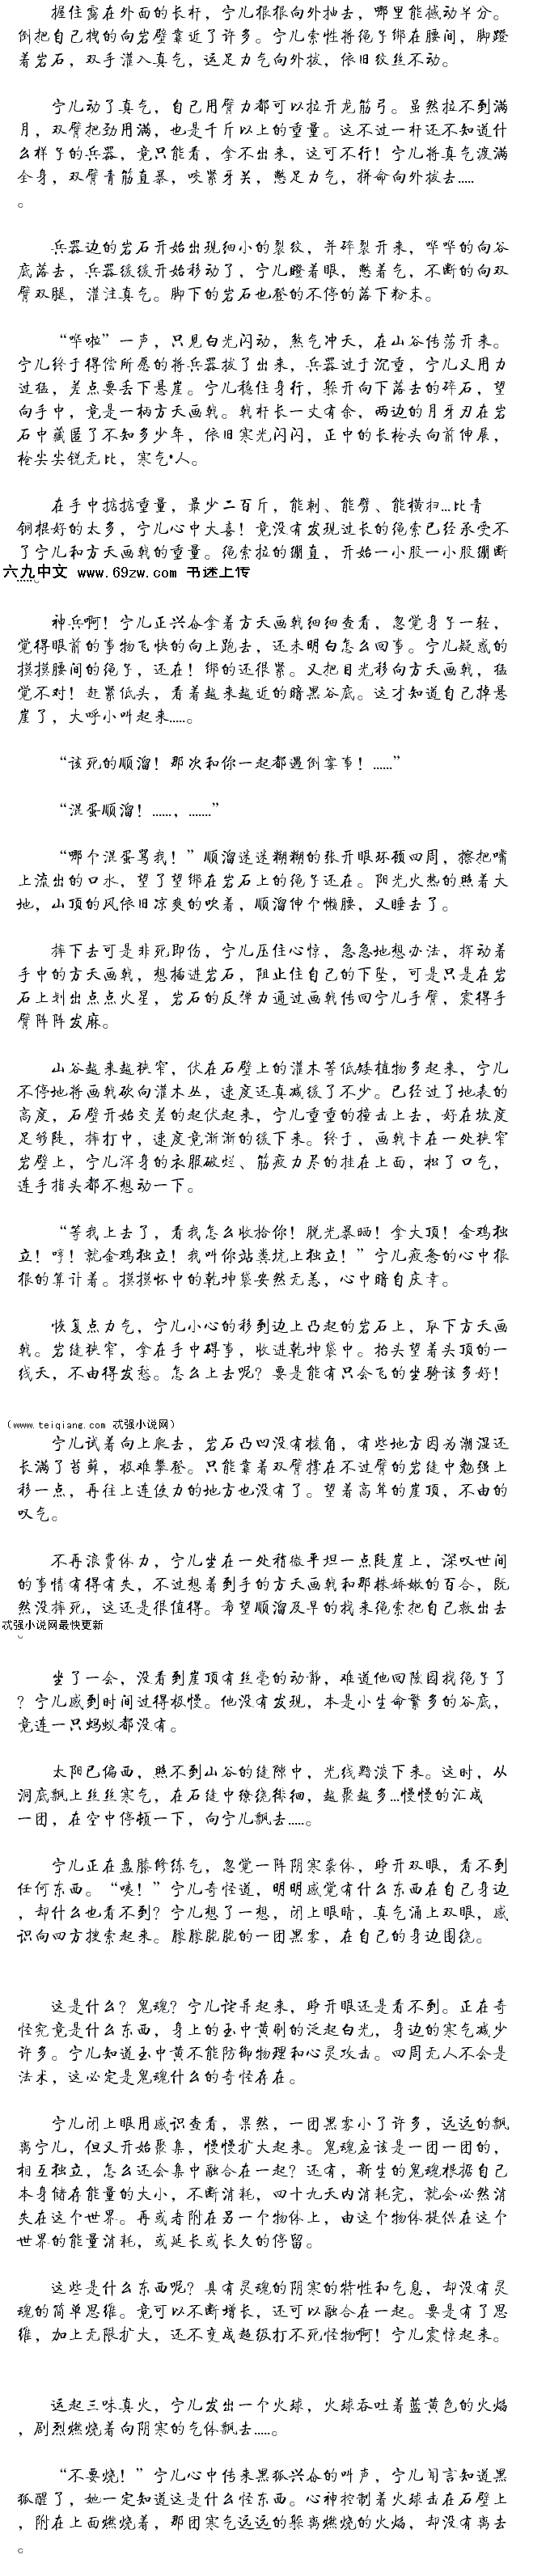 握住露在外面的长杆，宁儿狠狠向外抽去，哪里能撼动半分。
倒把自己拽的向岩壁靠近了许多。宁儿索性将绳子绑在腰间，脚蹬
着岩石，双手灌入真气，运足力气向外拔，依旧纹丝不动。
宁儿动了真气，自己用臂力都可以拉开龙筋弓。虽然拉不到满
月，双臂把劲用满，也是千斤以上的重量。这不过一杆还不知道什
么样子的兵器，竟只能看，拿不出来，这可不行！宁儿将真气渡满
全身，双臂青筋直暴，咬紧牙关，憋足力气，拼命向外拔去.....
。
兵器边的岩石开始出现细小的裂纹，并碎裂开来，哗哗的向谷
底落去，兵器缓缓开始移动了，宁儿瞪着眼，憋着气，不断的向双
臂双腿，灌注真气。脚下的岩石也登的不停的落下粉末。
“哗啦”一声，只见白光闪动，煞气冲天，在山谷传荡开来。
宁儿终于得偿所愿的将兵器拔了出来，兵器过于沉重，宁儿又用力
过猛，差点要丢下悬崖。宁儿稳住身行，躲开向下落去的碎石，望
向手中，竟是一柄方天画戟。戟杆长一丈有余，两边的月牙刃在岩
石中藏匿了不知多少年，依旧寒光闪闪，正中的长枪头向前伸展，
枪尖尖锐无比，寒气•人。
在手中掂掂重量，最少二百斤，能刺、能劈、能横扫...比青
铜棍好的太多，宁儿心中大喜！竟没有发现过长的绳索已经承受不
了宁儿和方天画戟的重量。绳索拉的绷直，开始一小股一小股绷断
.....。
六九中文 www.69zw.com 书迷上传
神兵啊！宁儿正兴奋拿着方天画戟细细查看，忽觉身子一轻，
觉得眼前的事物飞快的向上跑去，还未明白怎么回事。宁儿疑惑的
摸摸腰间的绳子，还在！绑的还很紧。又把目光移向方天画戟，猛
觉不对！赶紧低头，看着越来越近的暗黑谷底。这才知道自己掉悬
崖了，大呼小叫起来.....。
“该死的顺溜！那次和你一起都遇倒霉事！......”
“混蛋顺溜！......，.......”
“哪个混蛋骂我！”顺溜迷迷糊糊的张开眼环顾四周，擦把嘴
上流出的口水，望了望绑在岩石上的绳子还在。阳光火热的照着大
地，山顶的风依旧凉爽的吹着，顺溜伸个懒腰，又睡去了。
摔下去可是非死即伤，宁儿压住心惊，急急地想办法，挥动着
手中的方天画戟，想插进岩石，阻止住自己的下坠，可是只是在岩
石上划出点点火星，岩石的反弹力通过画戟传回宁儿手臂，震得手
臂阵阵发麻。
山谷越来越狭窄，伏在石壁上的灌木等低矮植物多起来，宁儿
不停地将画戟砍向灌木丛，速度还真减缓了不少。已经过了地表的
高度，石壁开始交差的起伏起来，宁儿重重的撞击上去，好在坡度
足够陡，摔打中，速度竟渐渐的缓下来。终于，画戟卡在一处狭窄
岩壁上，宁儿浑身的衣服破烂、筋疲力尽的挂在上面，松了口气，
连手指头都不想动一下。
“等我上去了，看我怎么收拾你！脱光暴晒！拿大顶！金鸡独
立！哼！就金鸡独立！我叫你站粪坑上独立！”宁儿疲惫的心中狠
狠的算计着。摸摸怀中的乾坤袋安然无恙，心中暗自庆幸。
恢复点力气，宁儿小心的移到边上凸起的岩石上，取下方天画
戟。岩缝狭窄，拿在手中碍事，收进乾坤袋中。抬头望着头顶的一
线天，不由得发愁。怎么上去呢？要是能有只会飞的坐骑该多好！
（www.teiqiang.com 忒强小说网）
宁儿试着向上爬去，岩石凸凹没有棱角，有些地方因为潮湿还
长满了苔藓，极难攀登。只能靠着双臂撑在不过臂的岩缝中勉强上
移一点，再往上连使力的地方也没有了。望着高耸的崖顶，不由的
叹气。
不再浪费体力，宁儿坐在一处稍微平坦一点陡崖上，深叹世间
的事情有得有失，不过想着到手的方天画戟和那株娇嫩的百合，既
然没摔死，这还是很值得。希望顺溜及早的找来绳索把自己救出去
忒强小说网最快更新
。
坐了一会，没看到崖顶有丝毫的动静，难道他回陵园找绳子了
？宁儿感到时间过得极慢。他没有发现，本是小生命繁多的谷底，
竟连一只蚂蚁都没有。
太阳已偏西，照不到山谷的缝隙中，光线黯淡下来。这时，从
洞底飘上丝丝寒气，在石缝中缭绕徘徊，越聚越多...慢慢的汇成
一团，在空中停顿一下，向宁儿飘去.....。
宁儿正在盘膝修练气，忽觉一阵阴寒袭体，睁开双眼，看不到
任何东西。“咦！”宁儿奇怪道，明明感觉有什么东西在自己身边
，却什么也看不到？宁儿想了一想，闭上眼睛，真气涌上双眼，感
识向四方搜索起来。朦朦胧胧的一团黑雾，在自己的身边围绕。
这是什么？鬼魂？宁儿诧异起来，睁开眼还是看不到。正在奇
怪究竟是什么东西，身上的玉中黄刷的泛起白光，身边的寒气减少
许多。宁儿知道玉中黄不能防御物理和心灵攻击。四周无人不会是
法术，这必定是鬼魂什么的奇怪存在。
宁儿闭上眼用感识查看，果然，一团黑雾小了许多，远远的飘
离宁儿，但又开始聚集，慢慢扩大起来。鬼魂应该是一团一团的，
相互独立，怎么还会集中融合在一起？还有，新生的鬼魂根据自己
本身储存能量的大小，不断消耗，四十九天内消耗完，就会必然消
失在这个世界。再或者附在另一个物体上，由这个物体提供在这个
世界的能量消耗，或延长或长久的停留。
这些是什么东西呢？具有灵魂的阴寒的特性和气息，却没有灵
魂的简单思维。竟可以不断增长，还可以融合在一起。要是有了思
维，加上无限扩大，还不变成超级打不死怪物啊！宁儿震惊起来。
运起三味真火，宁儿发出一个火球，火球吞吐着蓝黄色的火焰
，剧烈燃烧着向阴寒的气体飘去.....。
“不要烧！”宁儿心中传来黑狐兴奋的叫声，宁儿闻言知道黑
狐醒了，她一定知道这是什么怪东西。心神控制着火球击在石壁上
，附在上面燃烧着，那团寒气远远的躲离燃烧的火焰，却没有离去
。